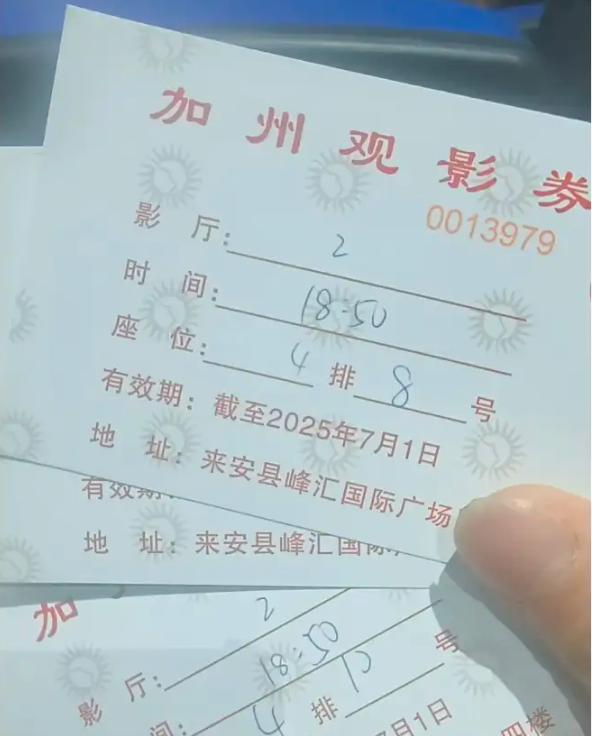 加州观影券
0013979
影 厅: 2
时 间: 18:50
座 位: 4 排 8 号
有效期: 截至2025年7月1日
地 址: 来安县峰汇国际广场
有效期:
地 址: 来安县峰汇国际
加
影 厅: 2
间: 18:50
4 排 号
7月1日
四楼